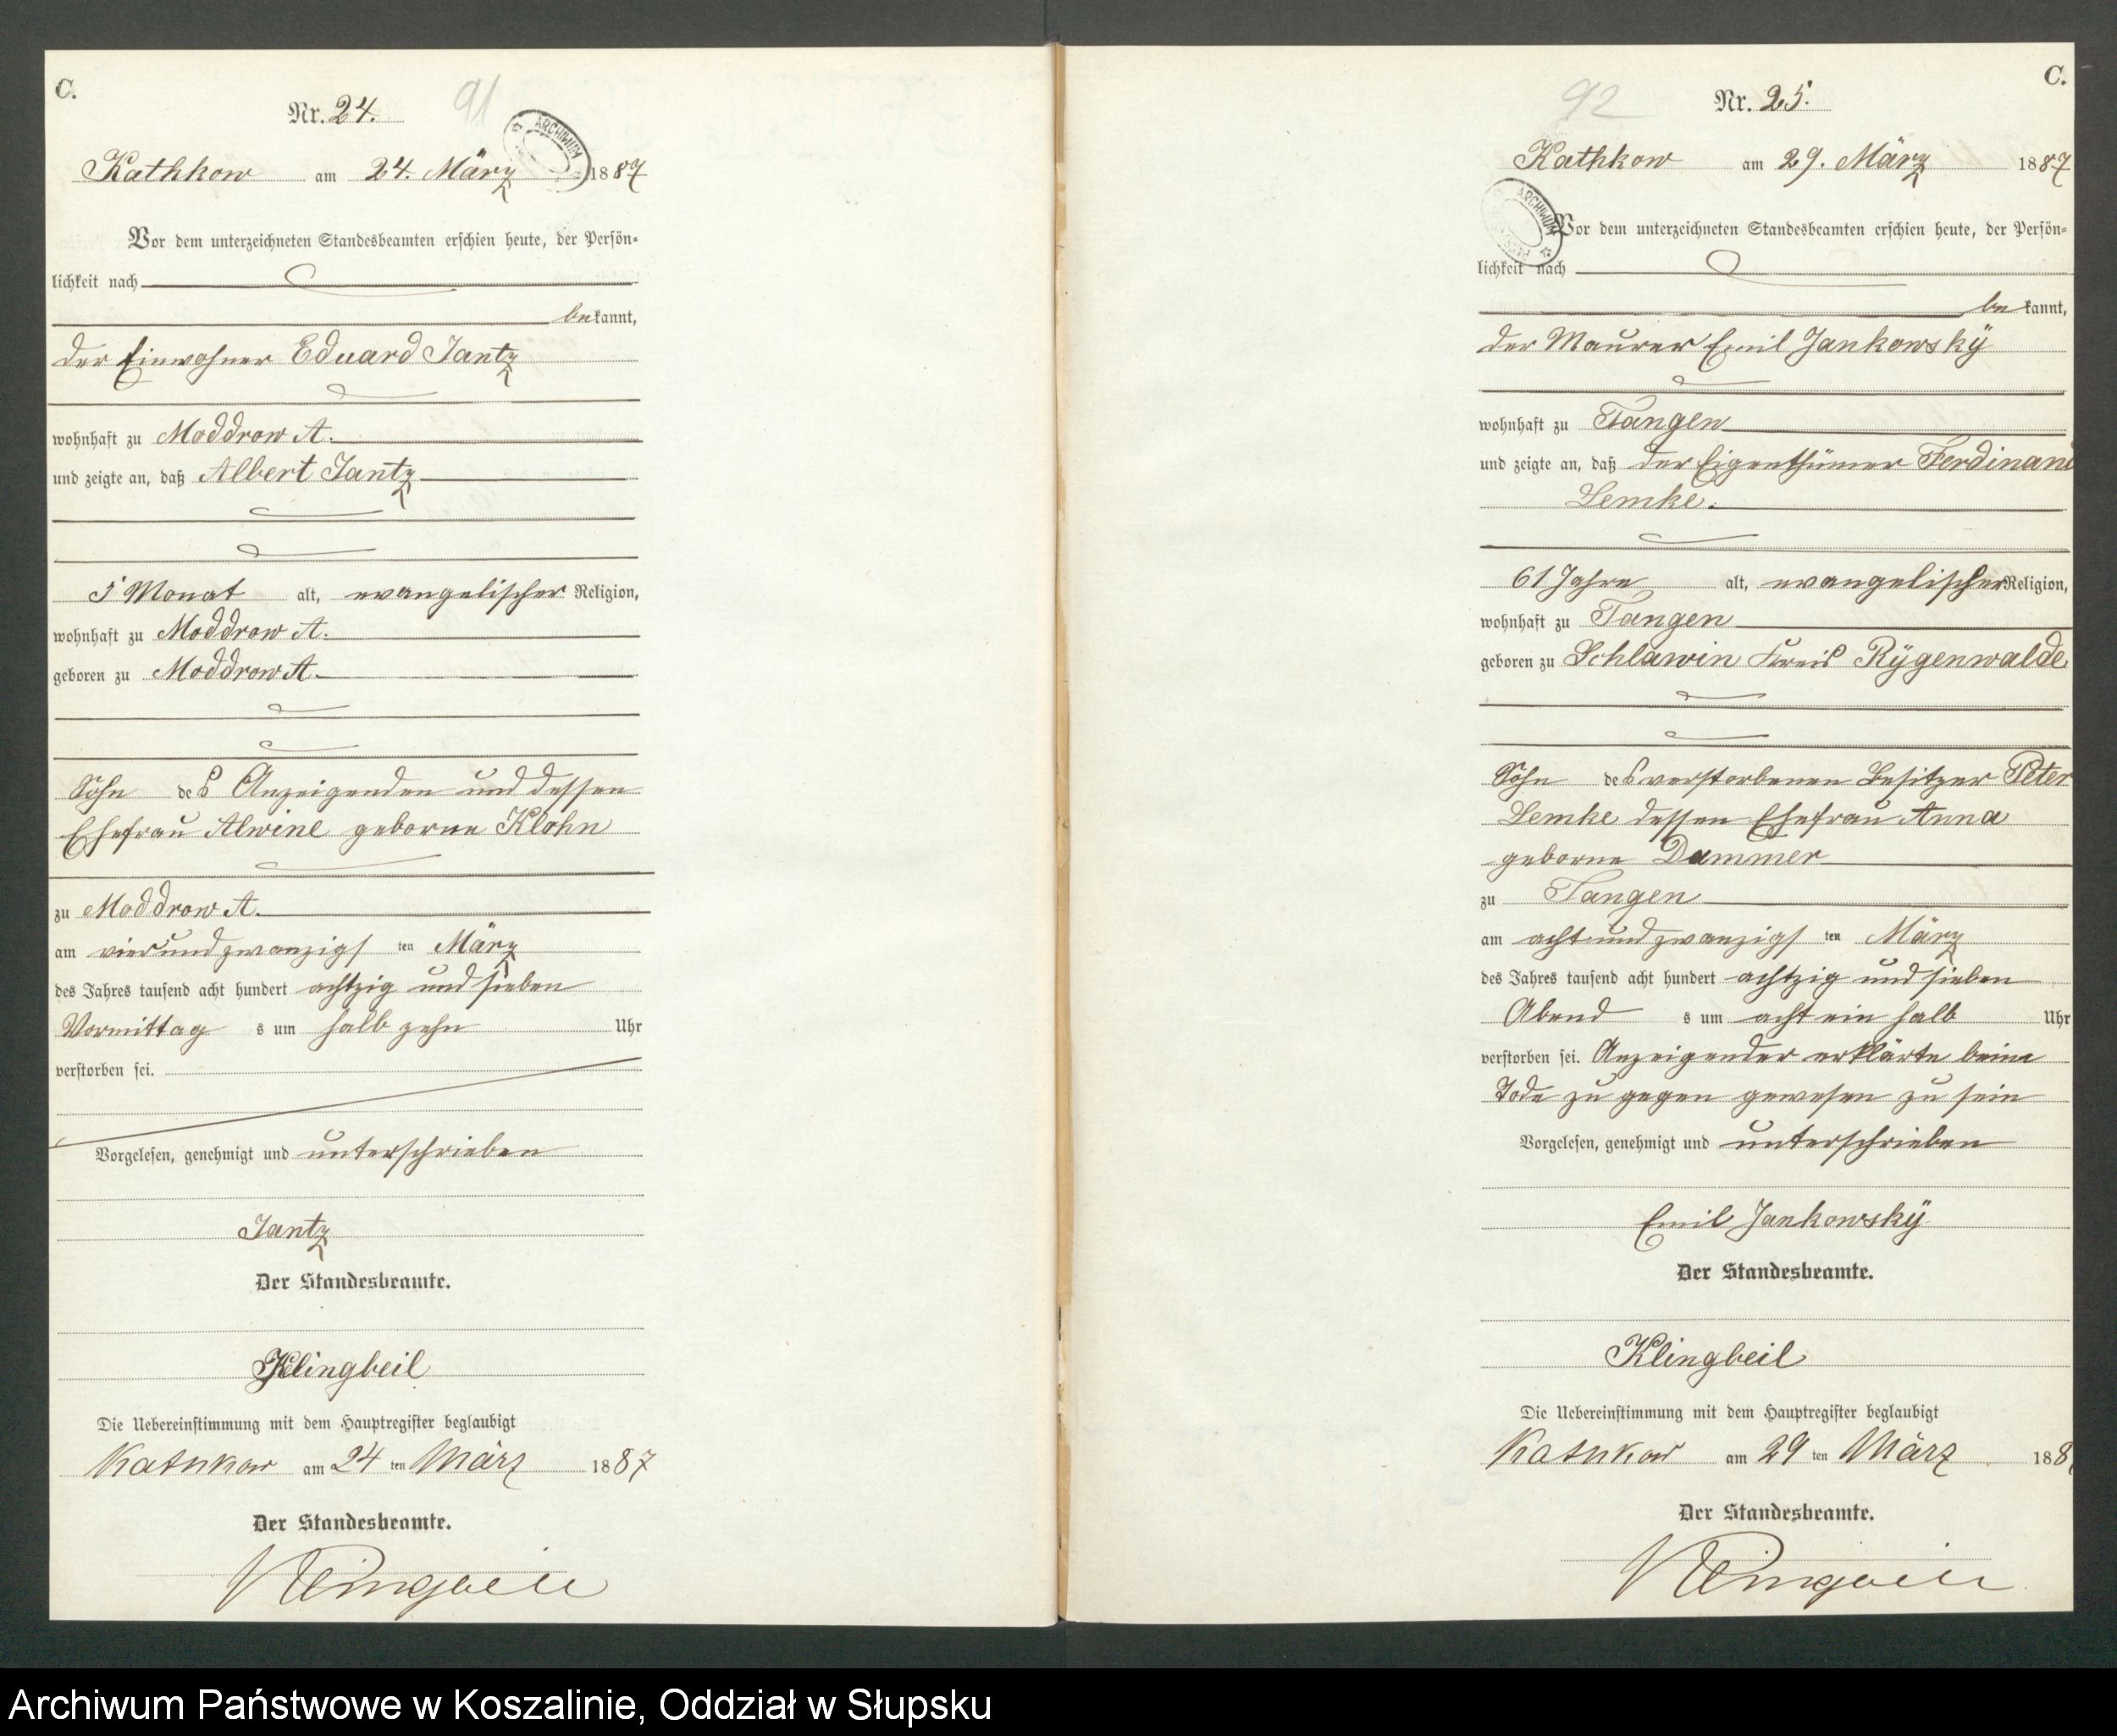 C.
91
Nr. 24.
ARCHIWUM
Kathkow am 24. März 1887
Vor dem unterzeichneten Standesbeamten erschien heute, der Persön-
lichkeit nach
bekannt,
der Einwohner Eduard Jantz
wohnhaft zu Moddrow A.
und zeigte an, daß Albert Jantz
5 Monat alt, evangelischer Religion,
wohnhaft zu Moddrow A.
geboren zu Moddrow A.
Sohn des Anzeigenden und dessen
Ehefrau Alwine geborne Klohn
zu Moddrow A.
am vierundzwanzigsten März
des Jahres tausend acht hundert achtzig und sieben
Vormittags um halb zehn Uhr
verstorben sei.
Vorgelesen, genehmigt und unterschrieben
Jantz
Der Standesbeamte.
Klingbeil
Die Uebereinstimmung mit dem Hauptregister beglaubigt
Kathkow am 24 ten März 1887
Der Standesbeamte.
Klingbeil
C.
92
Nr. 25.
Kathkow am 29. März 1887
ARCHIWUM
Vor dem unterzeichneten Standesbeamten erschien heute, der Persön-
lichkeit nach
bekannt,
der Maurer Emil Jankowsky
wohnhaft zu Tangen
und zeigte an, daß der Eigenthümer Ferdinand
Lemke.
61 Jahre alt, evangelischer Religion,
wohnhaft zu Tangen
geboren zu Schlawin Kreis Rygenwalde
Sohn des verstorbenen Besitzer Peter
Lemke dessen Ehefrau Anna
geborne Dammer
zu Tangen
am acht und zwanzigsten März
des Jahres tausend acht hundert achtzig und sieben
Abends um acht ein halb Uhr
verstorben sei. Anzeigender erklärte beim
Tode zu gegen gewesen zu sein
Vorgelesen, genehmigt und unterschrieben
Emil Jankowsky
Der Standesbeamte.
Klingbeil
Die Uebereinstimmung mit dem Hauptregister beglaubigt
Kathkow am 29 ten März 188
Der Standesbeamte.
Klingbeil
Archiwum Państwowe w Koszalinie, Oddział w Słupsku